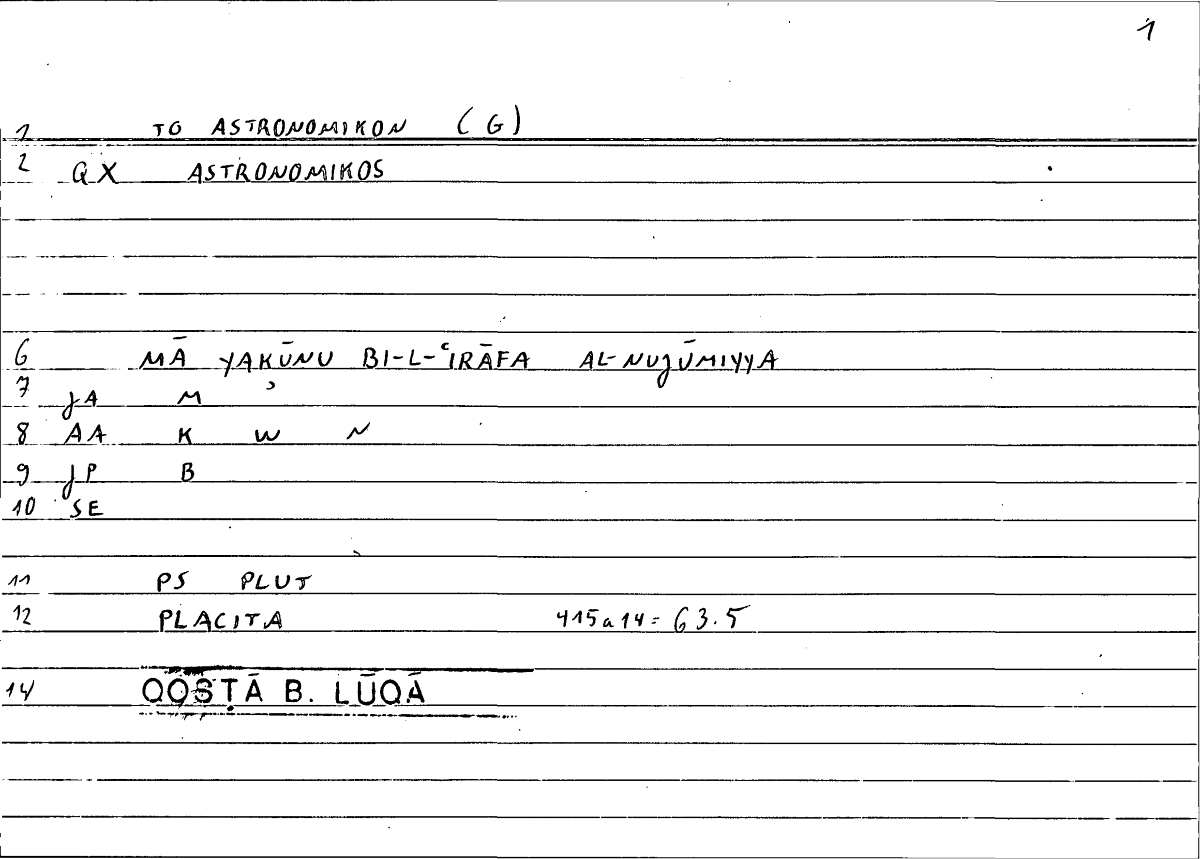 1
1 TO ASTRONOMIKON (G)
2 QX ASTRONOMIKOS
6 MĀ YAKŪNU BI-L-ʿIRĀFA AL-NUJŪMIYYA
7 JA M ʾ
8 AA K W N
9 JP B
10 SE
11 PS PLUT
12 PLACITA 415a14 = 63.5
14 QOSṬĀ B. LŪQĀ